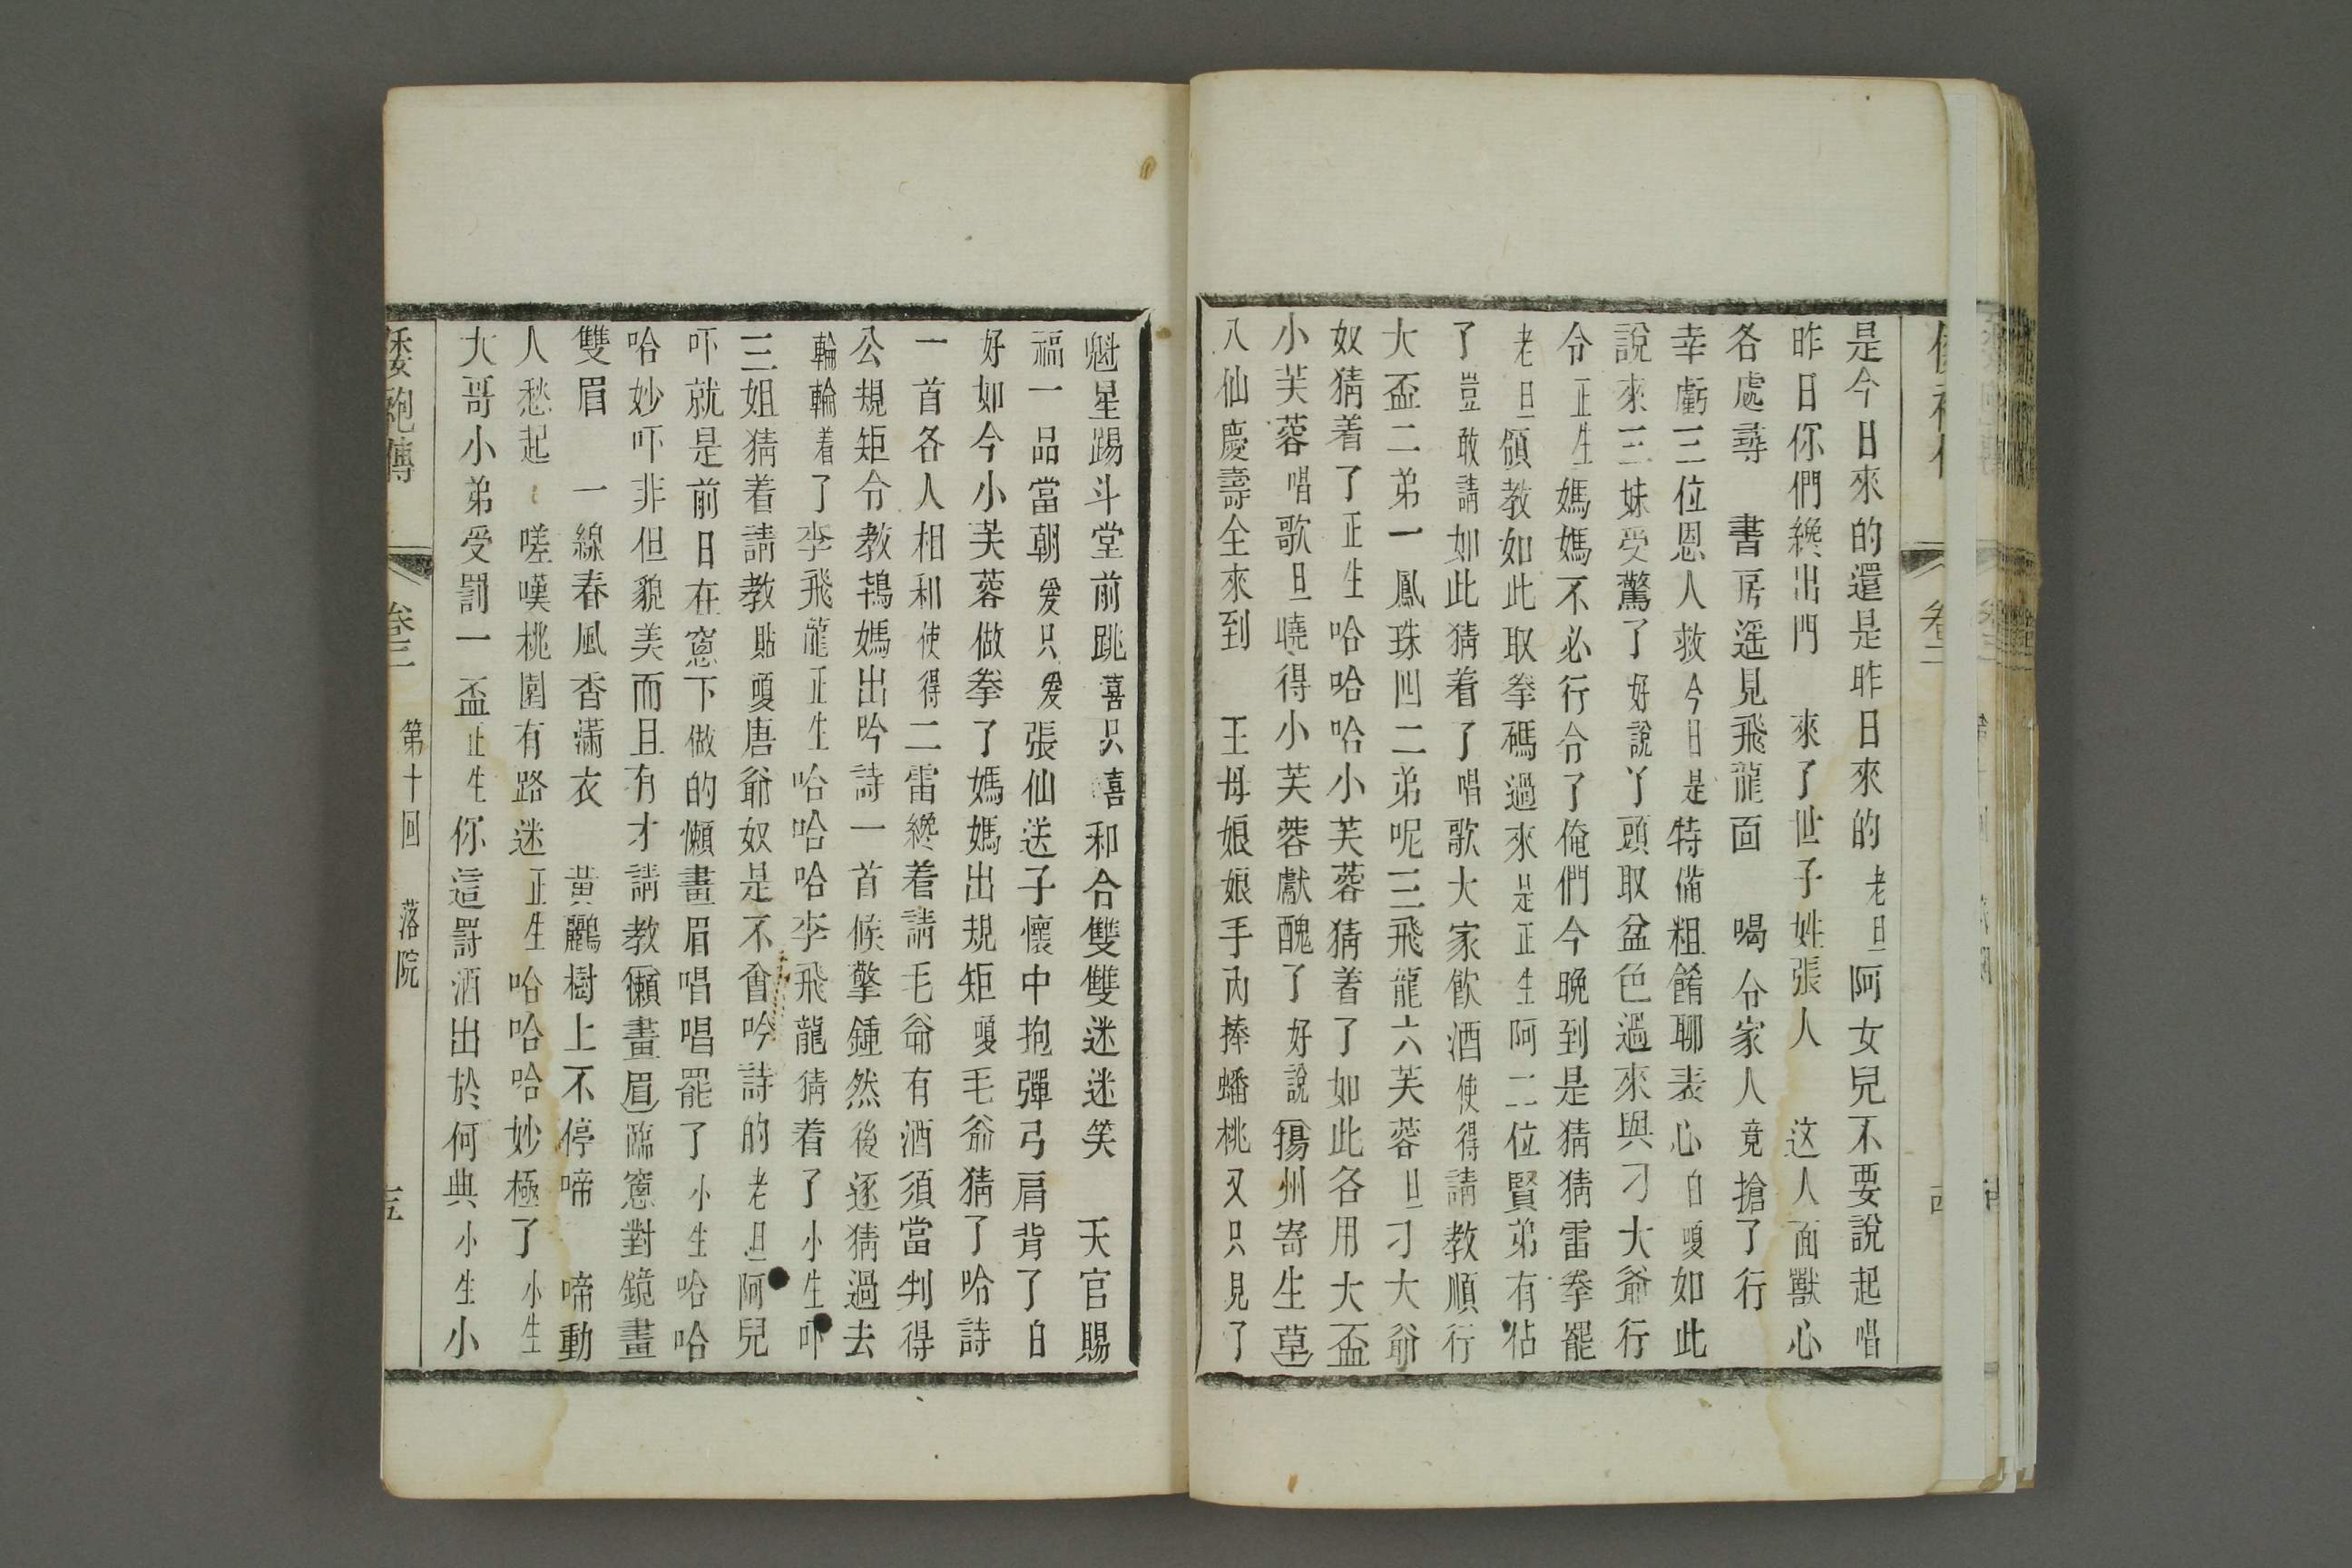 是今日來的還是昨日來的老旦阿女兒不要說起唱
昨日你們纔出門 來了世子姓張人 这人面獸心
各處尋 書房遥見飛龍面 喝令家人竟搶了行
幸虧三位恩人救今日是特俻粗餚聊表心白嗄如此
說來三妹受驚了好說丫頭取盆色過來與刁大爺行
令正生媽媽不必行令了俺們今晚到是猜猜雷拳罷
老旦領教如此取拳碼過來是正生阿二位賢弟有佔
了豈敢請如此猜着了唱歌大家飲酒使得請教順行
大盃二弟一鳳珠四二弟呢三飛龍六芙蓉旦刁大爺
奴猜着了正生哈哈哈小芙蓉猜着了如此各用大盃
小芙蓉唱歌旦曉得小芙蓉獻醜了好說揚州寄生草
八仙慶壽全來到 王母娘娘手內捧蟠桃又只見了
魁星踢斗堂前跳喜只喜和合雙雙迷迷笑 天官賜
福一品當朝爰只爰張仙送子懷中抱彈弓肩背了白
好如今小芙蓉做拳了媽媽出規矩嗄毛爺猜了哈詩
一首各人相和使得二雷纔着請毛爺有酒須當判得
公規矩令教鴇媽出吟詩一首候擎鍾然後逐猜過去
輪輪着了李飛龍正生哈哈哈李飛龍猜着了小生吓
三姐猜着請教貼嗄唐爺奴是不會吟詩的老旦阿兒
吓就是前日在窻下做的懶畫眉唱唱罷了小生哈哈
哈妙吓非但貌美而且有才請教懶畫眉臨窻對鏡畫
雙眉 一線春風杏滿衣 黃鸝樹上不停啼 啼動
人愁起 嗟嘆桃園有路迷正生哈哈哈妙極了小生
大哥小弟受罰一盃正生你這罸酒出於何典小生小
倭袍傳 卷三 第十回 落院 十五